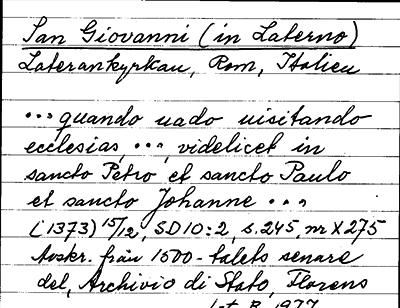 San Giovanni (in Laterno)
Laterankyrkan, Rom, Italien
... quando uado uisitando
ecclesias, ..., videlicet in
sancto Petro et sancto Paulo
et sancto Johanne ...
(1373) 15/12, SD 10:2, s. 245, nr X 275
Avskr. från 1500-talets senare
del, Archivio di Stato, Florens
1977